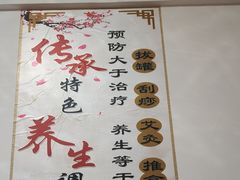 传承
特色
养生
调
预防大于治疗
养生等于
拔罐
刮痧
艾灸
推拿